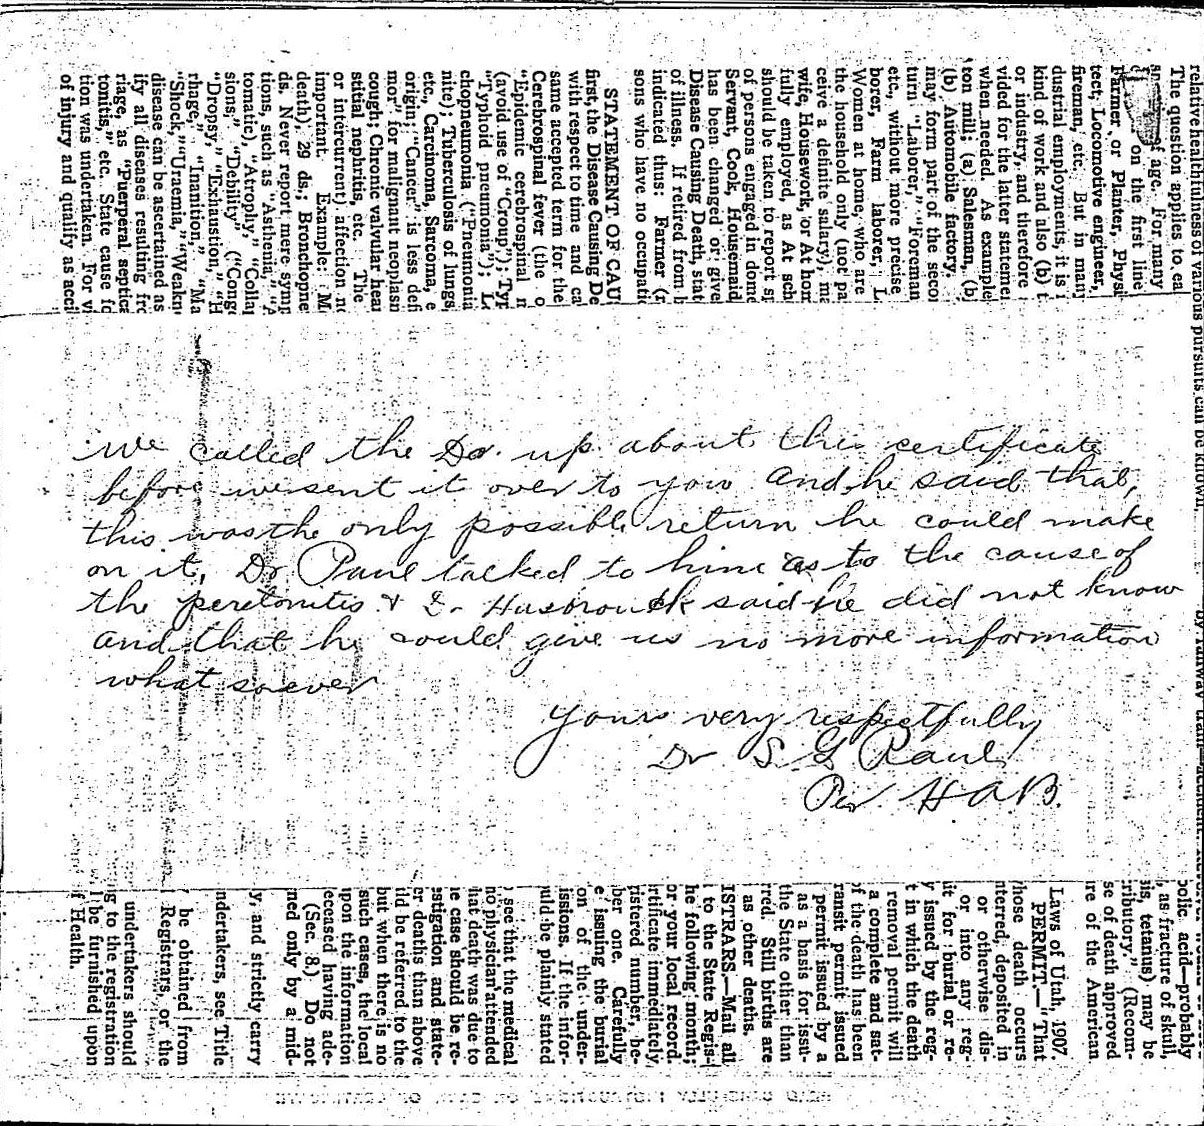 relative healthfulness of various pursuits can be known
The question applies to ea
of age. For many
on the first line
Farmer or Planter, Physi
tect, Locomotive engineer,
fireman, etc. But in many
dustrial employments, it is
kind of work and also (b) t
or industry, and therefore
vided for the latter statemen
when needed. As example
ton mill; (a) Salesman, (b
(b) Automobile factory.
may form part of the seco
turn "Laborer," "Foreman
etc., without more precise
borer, Farm laborer, L
Women at home, who are
the household only (not pa
ceive a definite salary), ma
wife, Housework, or At hom
fully employed, as At sch
should be taken to report sp
of persons engaged in dome
Servant, Cook, Housemaid
has been changed or give
Disease Causing Death, stat
of illness. If retired from b
indicated thus: Farmer (r
sons who have no occupati
STATEMENT OF CAU
first, the Disease Causing De
with respect to time and ca
same accepted term for the
Cerebrospinal fever (the o
"Epidemic cerebrospinal n
(avoid use of "Croup"); Typ
"Typhoid pneumonia"); L
chopneumonia ("Pneumonia
nite); Tuberculosis of lungs
etc., Carcinoma, Sarcoma, e
origin; "Cancer" is less defi
mor" for malignant neoplasm
cough; Chronic valvular hear
stitial nephritis, etc. The
or intercurrent) affection ne
important. Example: M
death), 29 ds.; Bronchopne
ds. Never report mere symp
tions, such as "Asthenia," "A
tomatic), "Atrophy," "Colla
sions," "Debility" ("Cong
"Dropsy," "Exhaustion," "H
rhage," "Inanition," "Ma
"Shock," "Uraemia," "Weakn
disease can be ascertained as
ify all diseases resulting fro
riage, as "Puerperal septica
tonitis," etc. State cause fo
tion was undertaken. For vi
of injury and qualify as acci
We called the Dr. up about this certificate
before we sent it over to you and he said that,
this was the only possible return he could make
on it, Dr Paul talked to him as to the cause of
the peretonitis & Dr Hasbrouck said he did not know
and that he could give us no more information
what soever
Yours very respectfully
Dr S. G Paul
Per H A B.
bolic acid—probably
, as fracture of skull,
is, tetanus) may be
ributory." (Recom-
se of death approved
re of the American
Laws of Utah, 1907.
PERMIT.—"That
hose death occurs
nterred, deposited in
or otherwise dis-
or into any reg-
it for burial or re-
y issued by the reg-
t in which the death
removal permit will
a complete and sat-
f the death has been
ransit permit issued
permit issued by a
as a basis for issu-
the State other than
rred. Still births are
as other deaths.
ISTRARS—Mail all
to the State Regis-
he following month;
or your local record.
rtificate immediately,
istered number, be-
ber one. Carefully
e issuing the burial
on of the under-
issions. If the infor-
uld be plainly stated
see that the medical
no physician attended
hat death was due to
ie case should be re-
estigation and state-
er deaths than above
ild be referred to the
but when there is no
such cases, the local
ipon the information
eceased having ade-
(Sec. 8.) Do not
med only by a mid-
y, and strictly carry
ndertakers, see Title
be obtained from
Registrars, or the
undertakers should
ng to the registration
l be furnished upon
f Health.